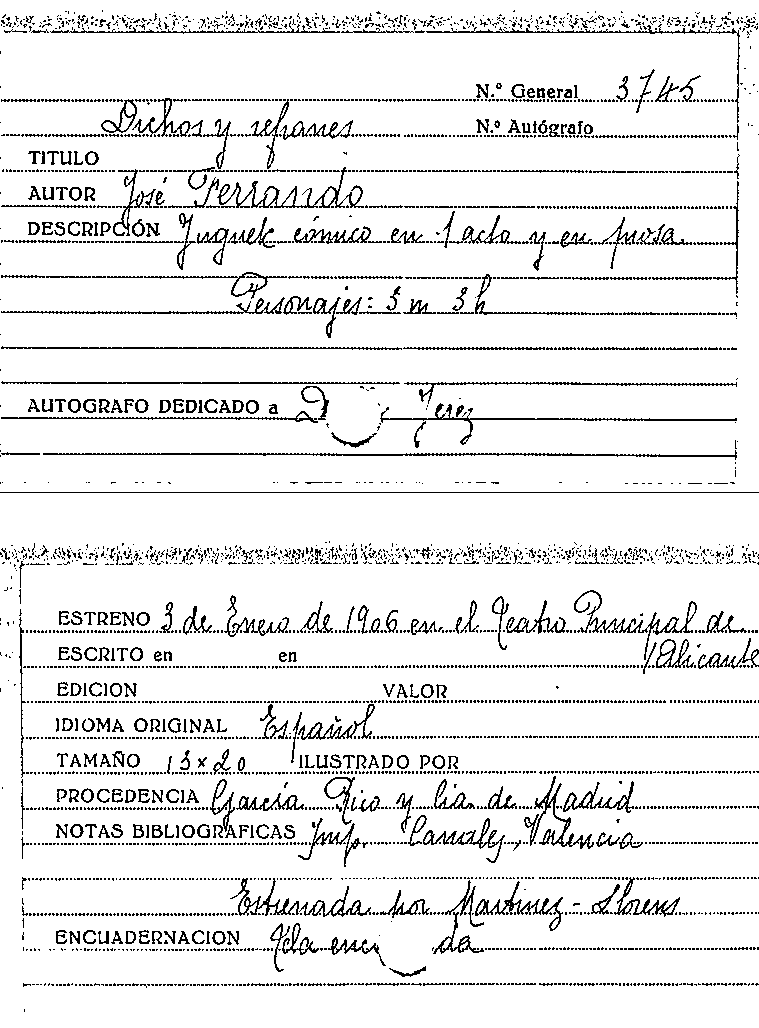 N.º General 3745
Dichos y refranes N.º Autógrafo
TITULO
AUTOR José Ferrando
DESCRIPCIÓN Juguete cómico en 1 acto y en prosa.
Personajes: 3 m 3 h
AUTOGRAFO DEDICADO a Jerez
ESTRENO 3 de Enero de 1906 en el Teatro Principal de
ESCRITO en en Alicante
EDICION VALOR
IDIOMA ORIGINAL Español
TAMAÑO 13 x 20 ILUSTRADO POR
PROCEDENCIA García Rico y Cia. de Madrid
NOTAS BIBLIOGRAFICAS Imp. Canales, Valencia
Estrenada por Martinez - Llorens
ENCUADERNACION Tela